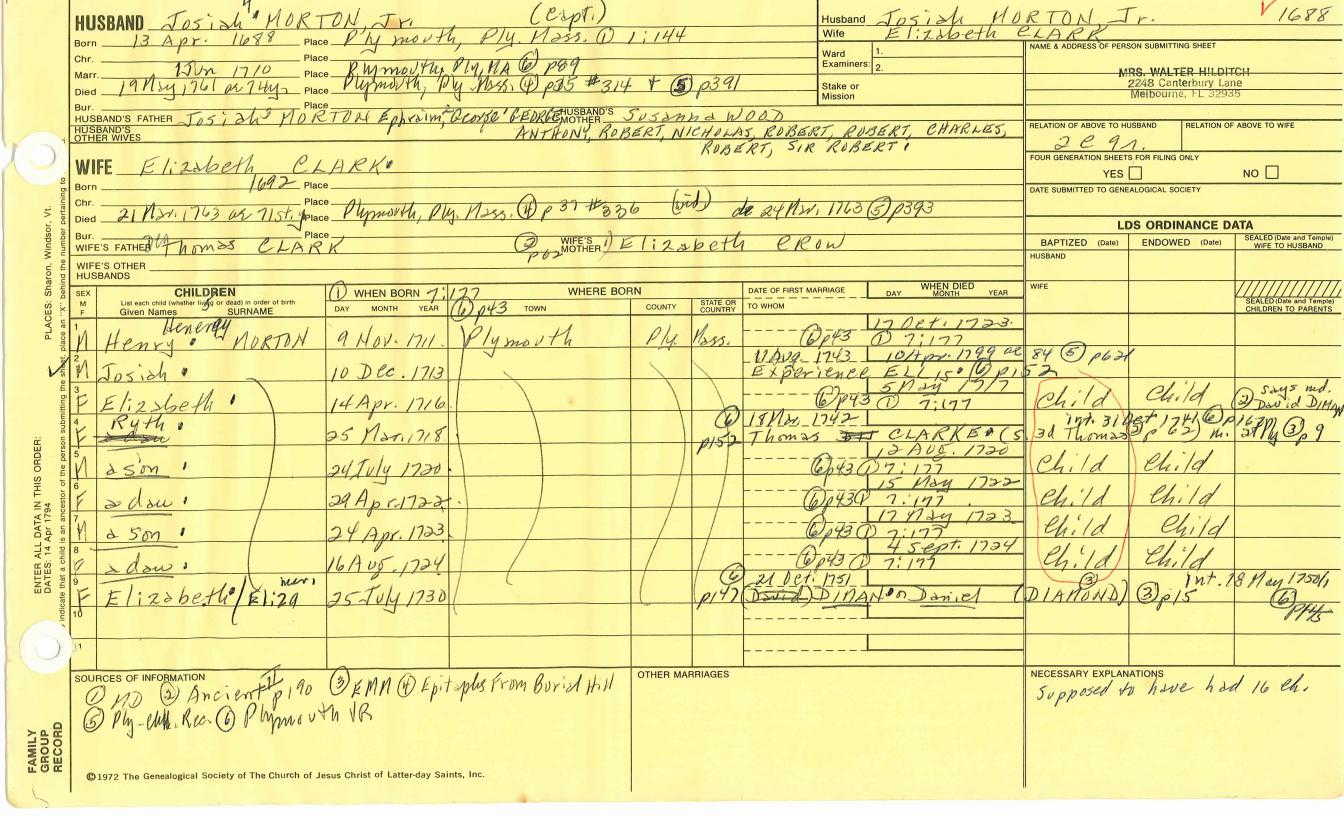 HUSBAND Josiah MORTON, Jr. (Capt.)
Husband Josiah MORTON, Jr. 1688
Wife Elizabeth CLARK
Born 13 Apr. 1688 Place Plymouth, Ply. Mass. ① 1:144
Chr. Place
Marr. 1 Jun 1710 Place Plymouth, Ply. MA ⑥ p89
Died 19 May 1761 ae 74 yr Place Plymouth, Ply Mass. ④ p35 #314 + ⑤ p391
Bur. Place
Ward Examiners: 1. 2.
Stake or Mission
NAME & ADDRESS OF PERSON SUBMITTING SHEET
MRS. WALTER HILDITCH
2248 Canterbury Lane
Melbourne, FL 32935
HUSBAND'S FATHER Josiah MORTON Ephraim, George GEORGE HUSBAND'S MOTHER Susanna WOOD
HUSBAND'S OTHER WIVES ANTHONY, ROBERT, NICHOLAS, ROBERT, ROBERT, CHARLES,
ROBERT, SIR ROBERT
RELATION OF ABOVE TO HUSBAND RELATION OF ABOVE TO WIFE
WIFE Elizabeth CLARK
Born 1692 Place
Chr. Place
Died 21 Mar. 1763 ae 71st y Place Plymouth, Ply. Mass. ④ p 37 #336 (wid) de 24 Mar. 1763 ⑤ p393
Bur. Place
FOUR GENERATION SHEETS FOR FILING ONLY
YES NO
DATE SUBMITTED TO GENEALOGICAL SOCIETY
WIFE'S FATHER Thomas CLARK ② p62 WIFE'S MOTHER Elizabeth CROW
WIFE'S OTHER HUSBANDS
LDS ORDINANCE DATA
BAPTIZED (Date) ENDOWED (Date) SEALED (Date and Temple) WIFE TO HUSBAND
HUSBAND
WIFE
SEALED (Date and Temple) CHILDREN TO PARENTS
SEX M F CHILDREN
List each child (whether living or dead) in order of birth
Given Names SURNAME
① WHEN BORN 7:177 DAY MONTH YEAR
WHERE BORN ⑥ p43 TOWN COUNTY STATE OR COUNTRY
DATE OF FIRST MARRIAGE TO WHOM
WHEN DIED DAY MONTH YEAR
1 M Henry MORTON 9 Nov. 1711 Plymouth Ply. Mass. 17 Oct. 1723 ⑥ p43 ① 7:177
2 M Josiah 10 Dec. 1713 11 Aug. 1743 10 Apr. 1799 ae 84 ⑤ p621
Experience ELLIS ⑥ p152
3 F Elizabeth 14 Apr. 1716 5 May 1717 ⑥ p43 ① 7:177 Child Child ② says md. David DIMAN
4 F Ryth 25 Mar. 1718 ⑥ p152 18 Mar. 1742 int. 31 Oct 1741 ⑥
Thomas CLARKE (s 3d Thomas ② p 62) m. at Ply ③ p 9
5 M a son 24 July 1720 12 Aug. 1720 ⑥ p43 ① 7:177 Child Child
6 F a dau 29 Apr. 1722 15 May 1722 ⑥ p43 ① 7:177 Child Child
7 M a son 24 Apr. 1723 17 May 1723 ⑥ p43 ① 7:177 Child Child
8 F a dau 16 Aug. 1724 4 Sept. 1724 ⑥ p43 ① 7:177 Child Child
9 F Elizabeth / Eliza 25 July 1730 ⑥ p147 21 Oct. 1751 Int. 18 May 1750/1
(David) DIMAN or Daniel (DIAMOND) ③ p15 ⑥
10
11
SOURCES OF INFORMATION
① MD ② Ancient II p190 ③ EMM ④ Epitaphs From Burial Hill
⑤ Ply. chh. Rec. ⑥ Plymouth VR
OTHER MARRIAGES
NECESSARY EXPLANATIONS
Supposed to have had 16 ch.
©1972 The Genealogical Society of The Church of Jesus Christ of Latter-day Saints, Inc.
FAMILY GROUP RECORD
ENTER ALL DATA IN THIS ORDER:
DATES: 14 Apr 1794
PLACES: Sharon, Windsor, Vt.
indicate that a child is an ancestor of the person submitting the sheet, place an "X" behind the number pertaining to